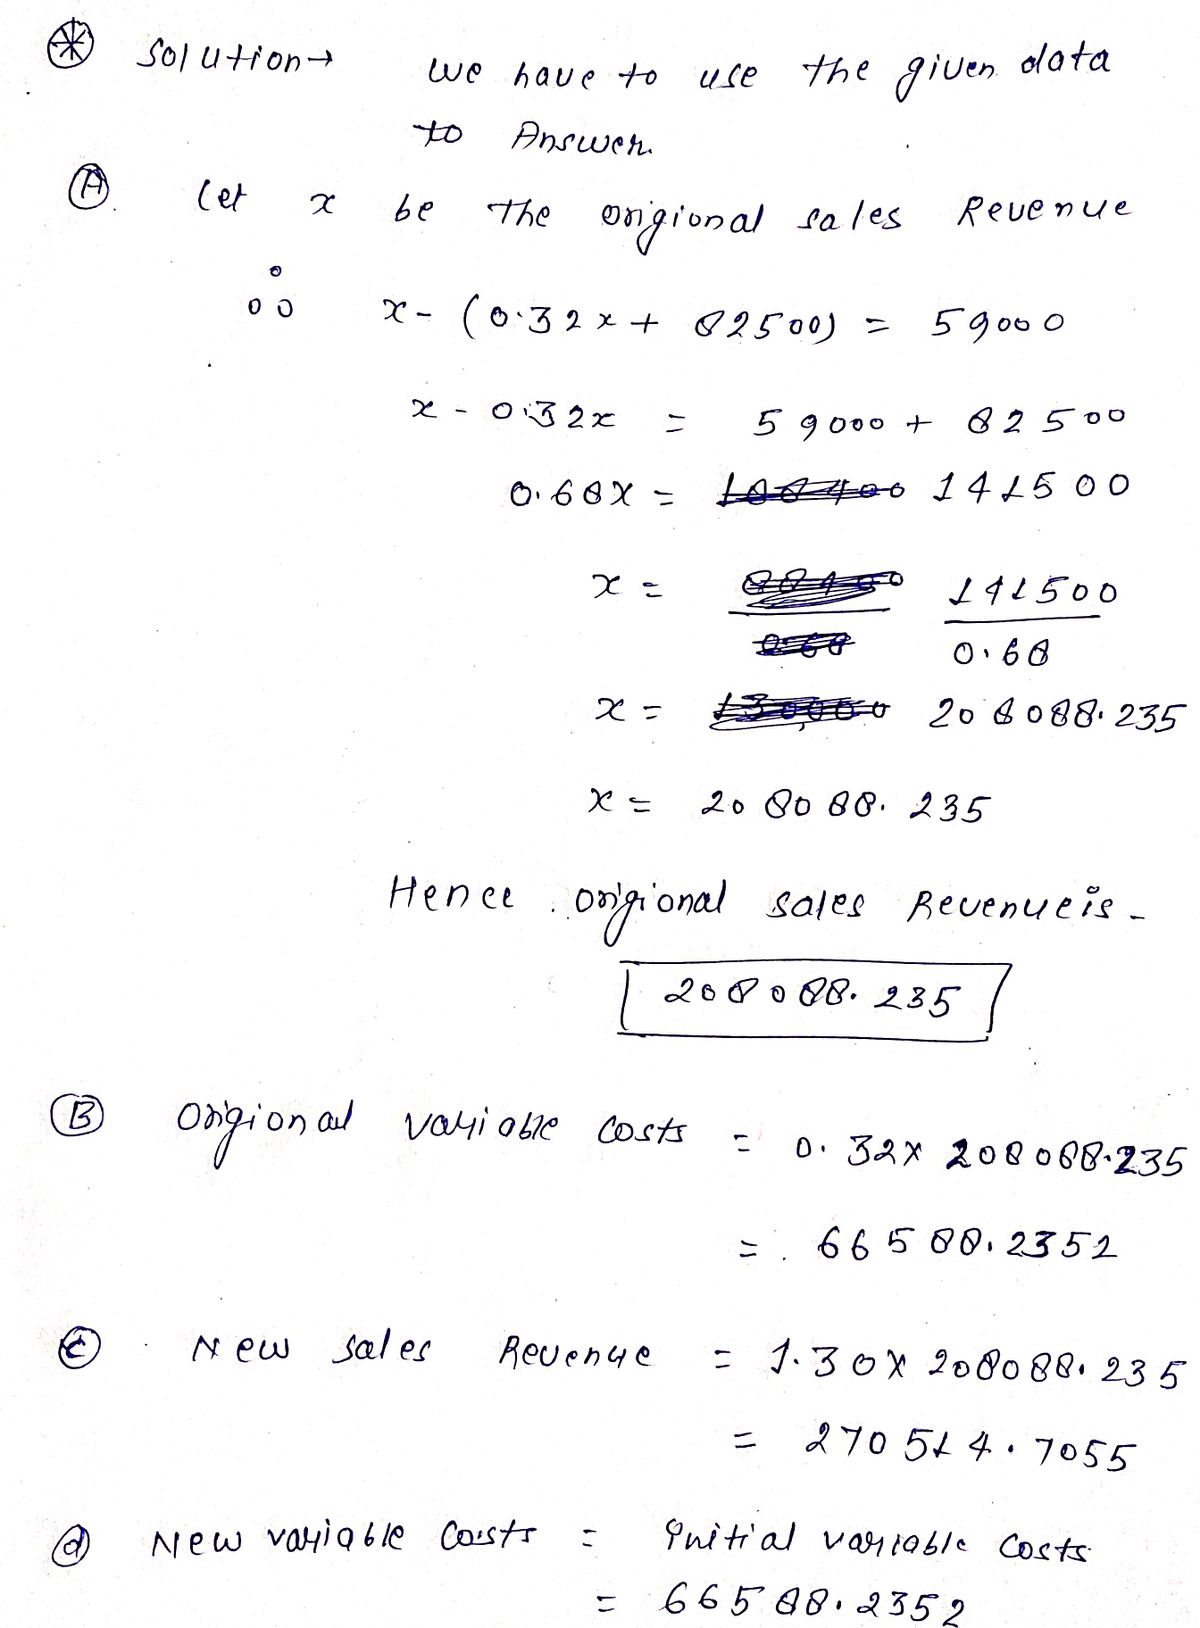 * Solution→ We have to use the given data
to Answer.
A. Let x be the origional sales Revenue
∴ x - (0.32x + 82500) = 59000
x - 0.32x = 59000 + 82500
0.68x = 141500
x = 141500
0.68
x = 208088.235
x = 208088.235
Hence origional sales Revenue is -
208088.235
B Origional variable costs = 0.32 x 208088.235
= 66588.2352
C New sales Revenue = 1.30 x 208088.235
= 270514.7055
d New variable Costs = Initial variable Costs
= 66588.2352